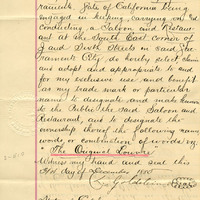 ramento State of California being
engaged in keeping, carrying on and
conducting a Saloon and Restau-
rant at the South East Corner of
J and Sixth Streets in said Sac-
ramento City, do hereby select claim
and adopt and appropriate to and
for my exclusive use and benefit
as my trade mark or particular
name to designate and make known
to the Public the said Saloon and
Restaurant, and to designate the
ownership thereof the following name
words or combination of words viz:
"The Original Louvre"
Witness my hand and seal this
day of December 1880